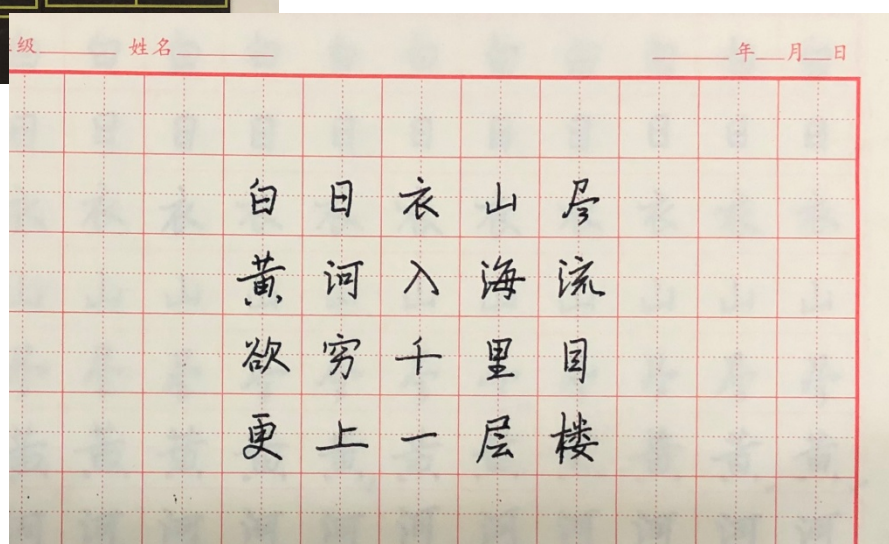 级 姓名 年 月 日
白日衣山尽
黄河入海流
欲穷千里目
更上一层楼